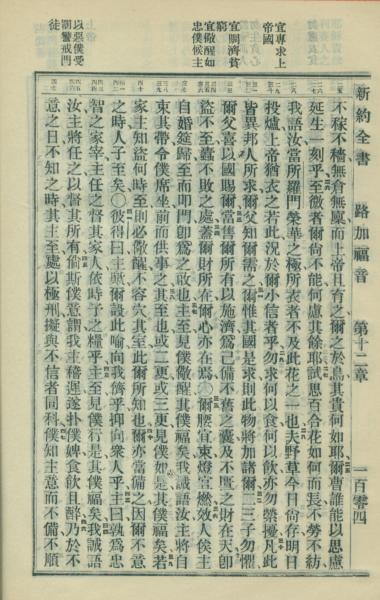 新約全書　路加福音　第十二章　一百零四
宜專求上
帝國
宜賙濟貧
窮
宜儆醒如
忠僕候主
以惡僕受
罰警戒門
徒
不稼不穡無倉無廩而上帝且育之爾之於鳥其貴何如耶爾曹誰能以思慮
延生一刻乎至微者爾尚不能何慮其餘耶試思百合花如何而長不勞不紡
我語汝當所羅門榮華之極所衣者不及此花之一也夫野草今日尚存明日
投爐上帝猶衣之若此況於爾小信者乎勿求何以食何以飲亦勿縈擾凡此
皆異邦人所求爾父知爾需之爾惟其國是求則此物將加諸爾二三子勿懼
爾父喜以國賜爾當售爾所有以施濟爲己備不舊之囊及不匱之財在天卽
盜不至蠹不敗之處蓋爾財所在爾心亦在焉〇爾腰宜束燈宜燃效人俟主
自婚筵歸至而叩門卽爲之啟也主至見僕儆醒其僕福矣我誠語汝主將自
束其帶令僕席坐前而供事之其至也或二更或三更見僕如是其僕福矣若
家主知盜何時至則必儆醒不容穴其室此爾所知也爾亦當備之因爾不意
之時人子至矣〇彼得曰主歟爾設此喻向我儕乎抑向衆人乎主曰孰爲忠
智之家宰主任之督其家人依時予之糧乎主至見僕行是其僕福矣我誠語
汝主將任之以督其所有倘斯僕意謂我主稽遲遂扑僕婢食飲且醉乃於不
意之日不知之時其主至處以極刑擬與不信者同科僕知主意而不備不順